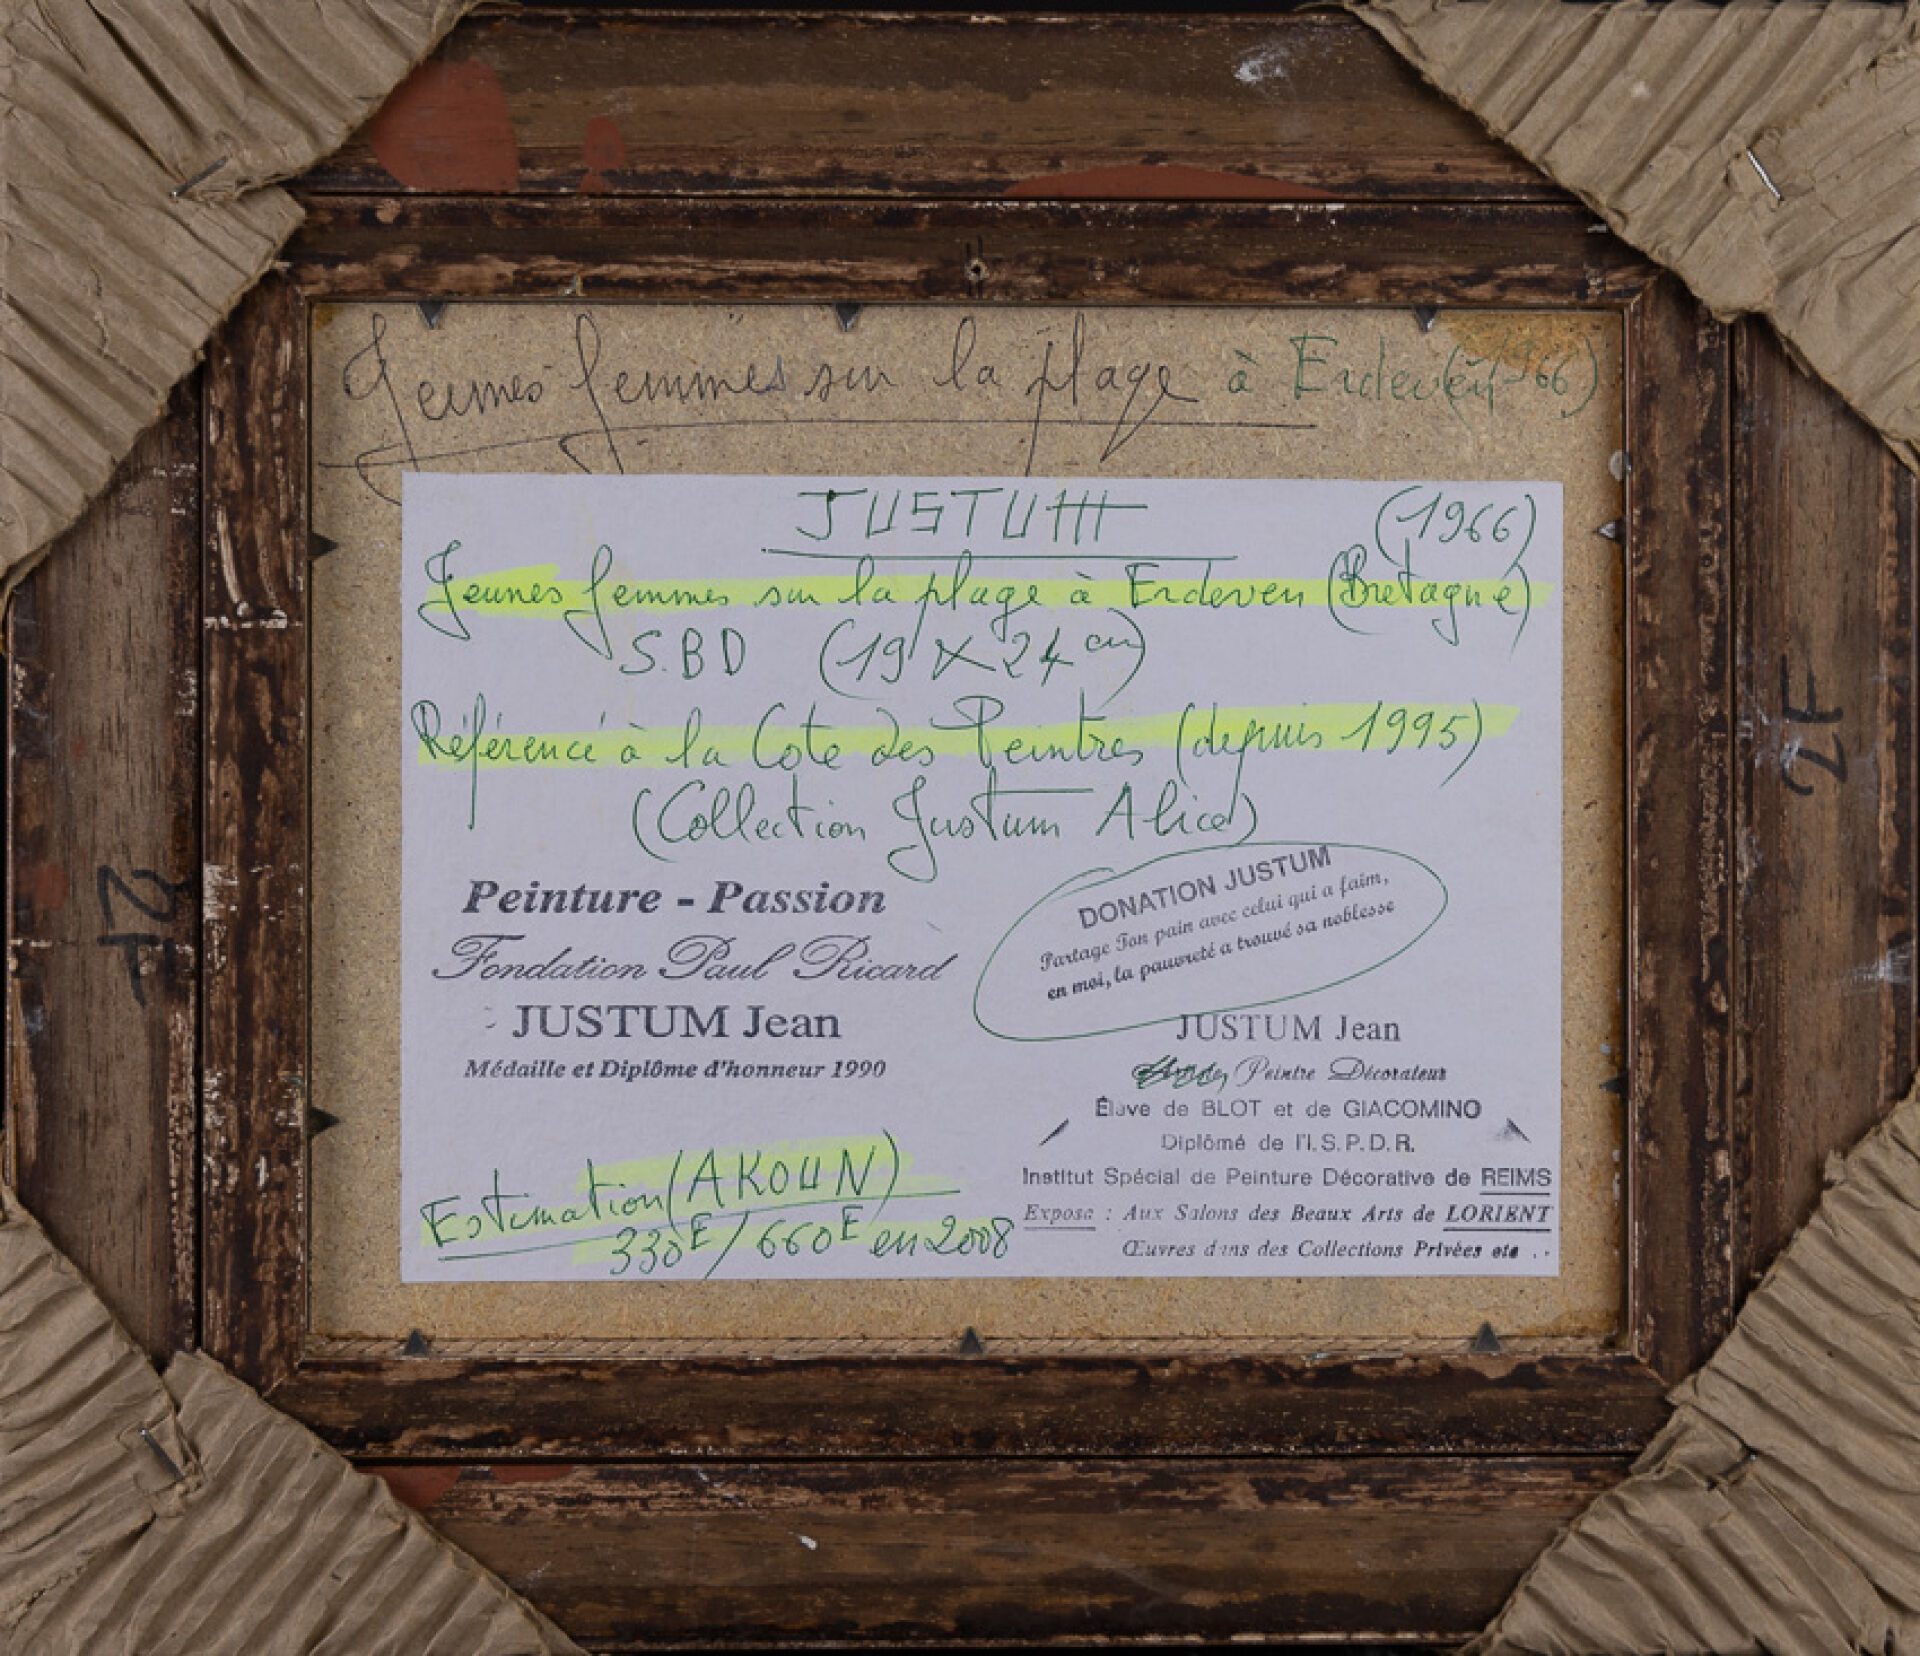 Jeunes femmes sur la plage à Erdeven (1966)
JUSTUM
(1966)
Jeunes femmes sur la plage à Erdeven (Bretagne)
S.BD (19 X 24 cm)
Référencé à la Cote des Peintres (depuis 1995)
(Collection Justum Alice)
Peinture - Passion
Fondation Paul Ricard
JUSTUM Jean
Médaille et Diplôme d'honneur 1990
DONATION JUSTUM
Partage Ton pain avec celui qui a faim,
en moi, la pauvreté a trouvé sa noblesse
JUSTUM Jean
Peintre Décorateur
Élève de BLOT et de GIACOMINO
Diplômé de l'I.S.P.D.R.
Institut Spécial de Peinture Décorative de REIMS
Exposa : Aux Salons des Beaux Arts de LORIENT
Œuvres dans des Collections Privées etc ..
Estimation (AKOUN)
330E/660E en 2008
2F
2F